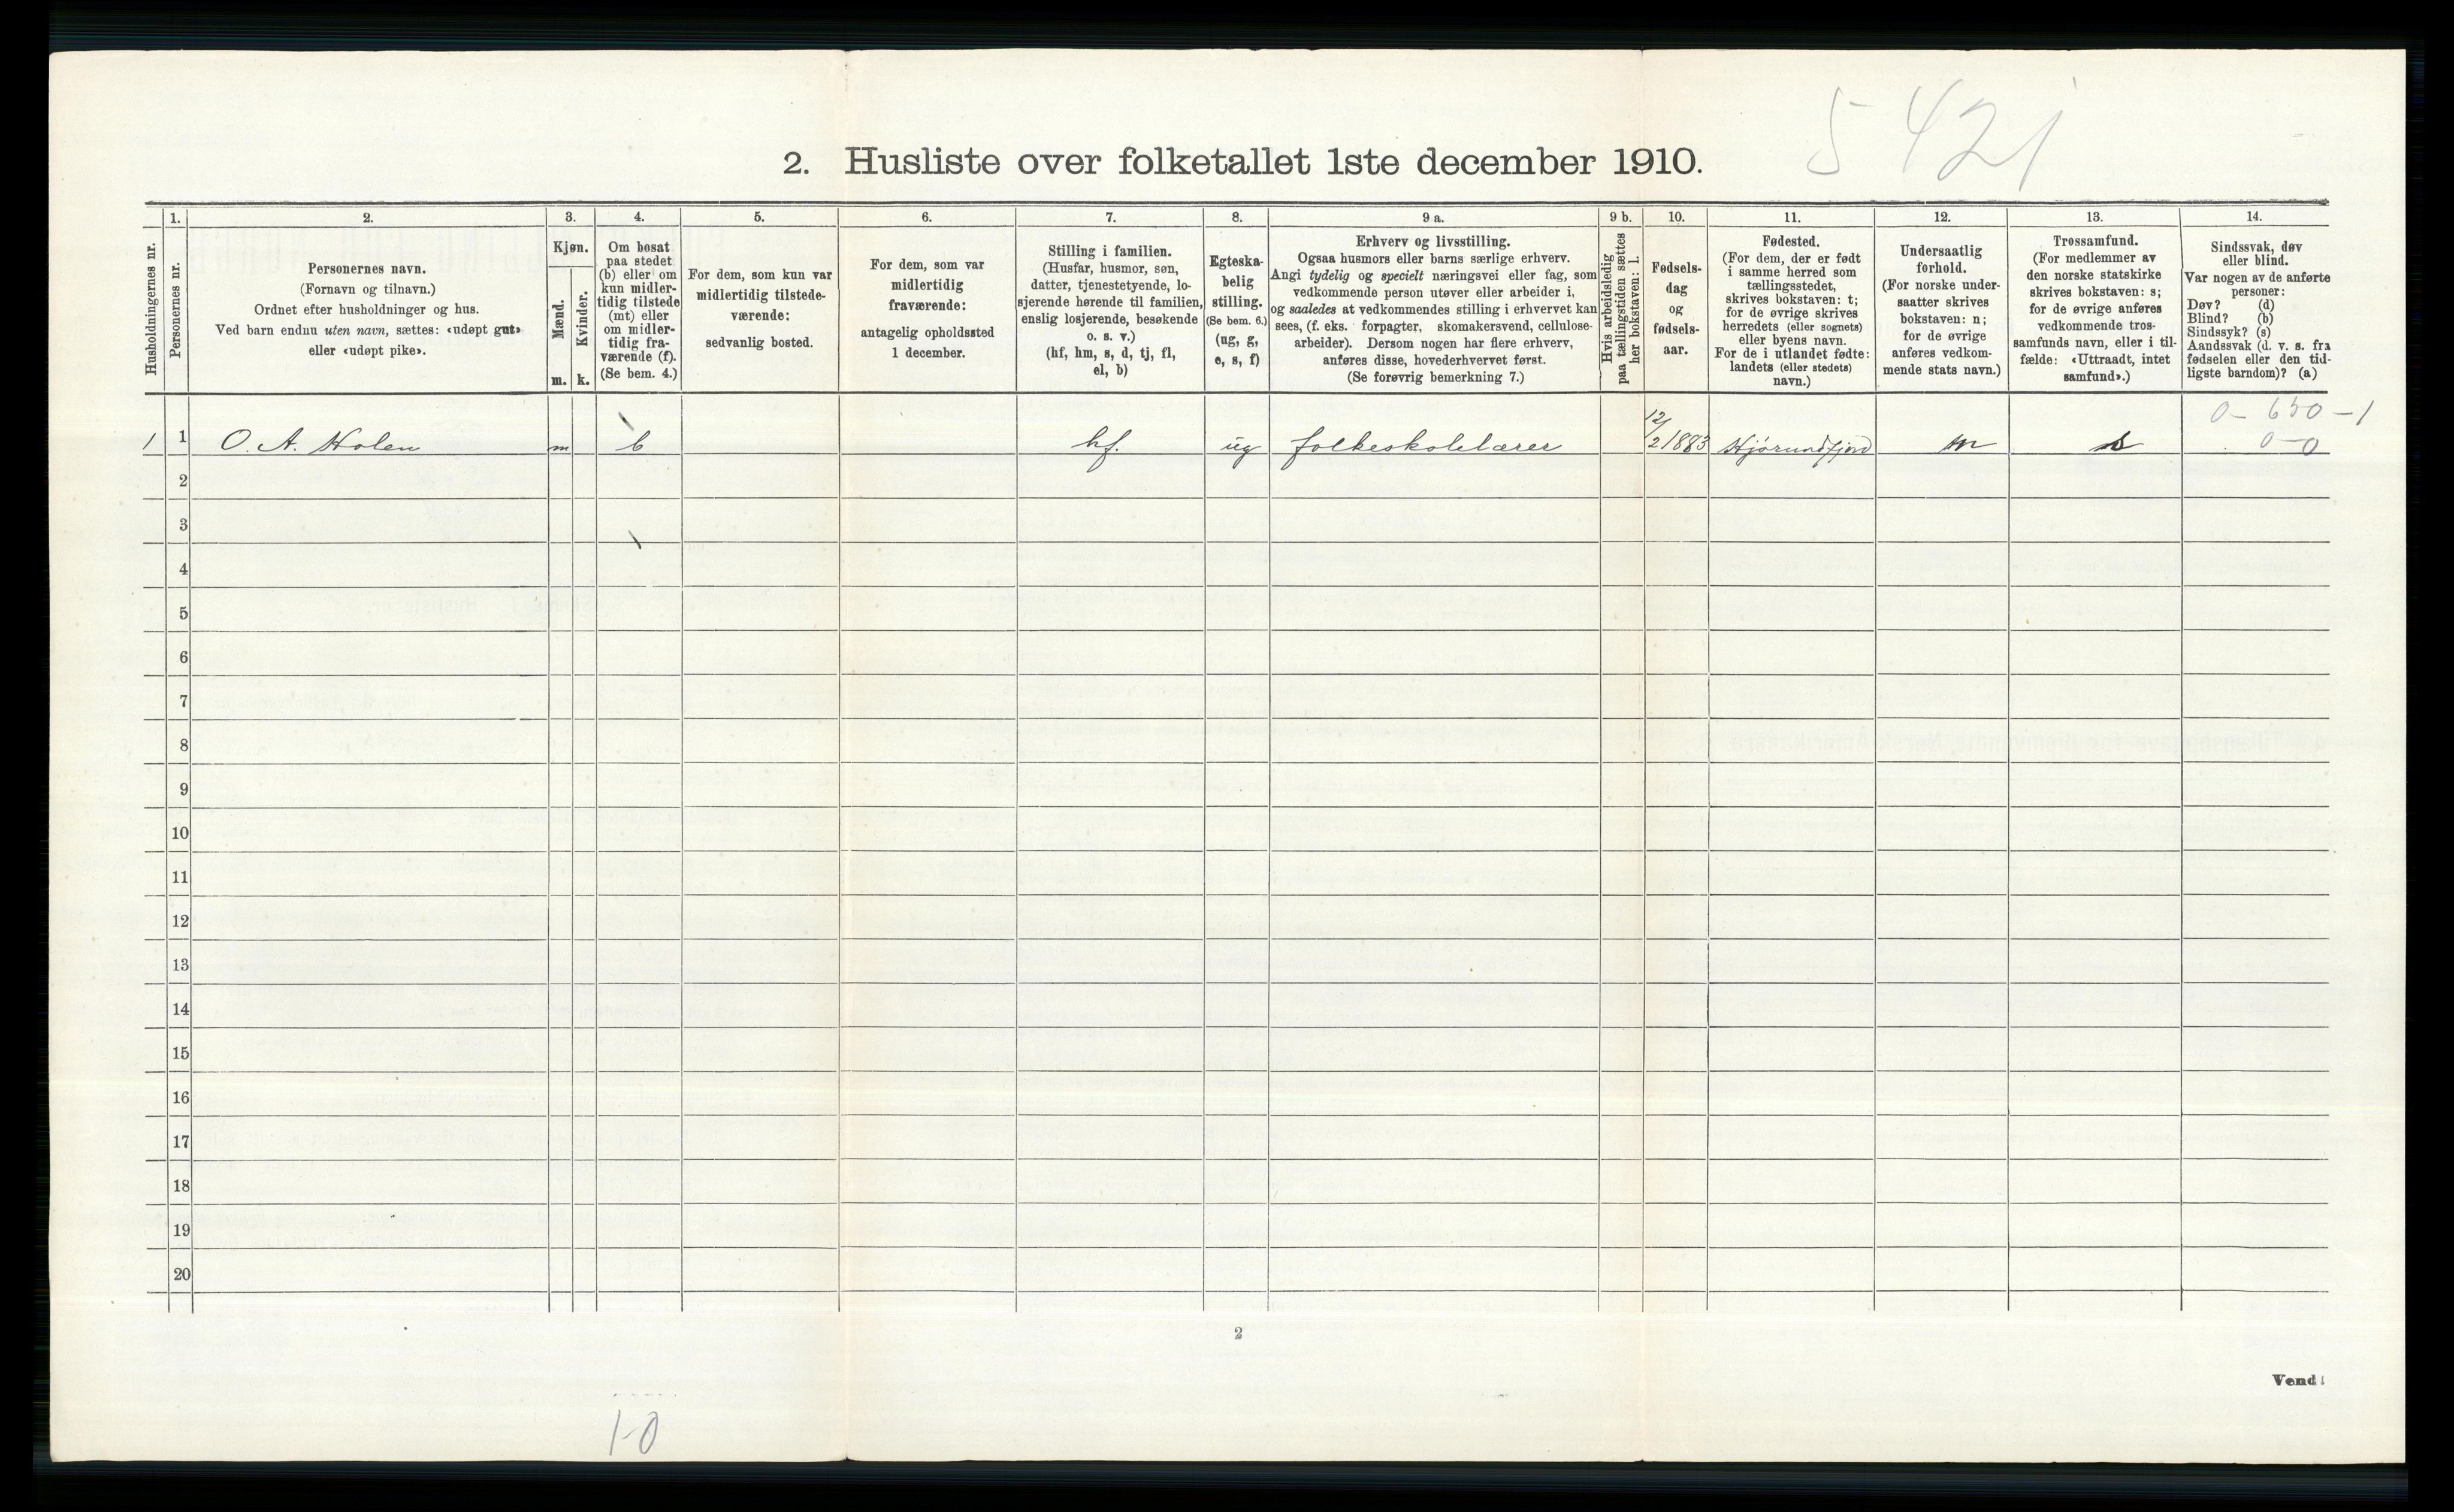 5421
2. Husliste over folketallet 1ste december 1910.
Husholdningernes nr.
1.
Personernes nr.
2.
Personernes navn.
(Fornavn og tilnavn.)
Ordnet efter husholdninger og hus.
Ved barn endnu uten navn, sættes: «udøpt gut»
eller «udøpt pike».
3.
Kjøn.
Mænd.
Kvinder.
m. k.
4.
Om bosat
paa stedet
(b) eller om
kun midler-
tidig tilstede
(mt) eller
om midler-
tidig fra-
værende (f).
(Se bem. 4.)
5.
For dem, som kun var
midlertidig tilstede-
værende:
sedvanlig bosted.
6.
For dem, som var
midlertidig
fraværende:
antagelig opholdssted
1 december.
7.
Stilling i familien.
(Husfar, husmor, søn,
datter, tjenestetyende, lo-
sjerende hørende til familien,
enslig losjerende, besøkende
o. s. v.)
(hf, hm, s, d, tj, fl,
el, b)
8.
Egteska-
belig
stilling.
(Se bem. 6.)
(ug, g,
e, s, f)
9 a.
Erhverv og livsstilling.
Ogsaa husmors eller barns særlige erhverv.
Angi tydelig og specielt næringsvei eller fag, som
vedkommende person utøver eller arbeider i,
og saaledes at vedkommendes stilling i erhvervet kan
sees, (f. eks. forpagter, skomakersvend, cellulose-
arbeider). Dersom nogen har flere erhverv,
anføres disse, hovederhvervet først.
(Se forøvrig bemerkning 7.)
9 b.
Hvis arbeidsledig
paa tællingstiden sættes
her bokstaven: l.
10.
Fødsels-
dag
og
fødsels-
aar.
11.
Fødested.
(For dem, der er født
i samme herred som
tællingsstedet,
skrives bokstaven: t;
for de øvrige skrives
herredets (eller sognets)
eller byens navn.
For de i utlandet fødte:
landets (eller stedets)
navn.)
12.
Undersaatlig
forhold.
(For norske under-
saatter skrives
bokstaven: n;
for de øvrige
anføres vedkom-
mende stats navn.)
13.
Trossamfund.
(For medlemmer av
den norske statskirke
skrives bokstaven: s;
for de øvrige anføres
vedkommende tros-
samfunds navn, eller i til-
fælde: «Uttraadt, intet
samfund».)
14.
Sindssvak, døv
eller blind.
Var nogen av de anførte
personer:
Døv? (d)
Blind? (b)
Sindssyk? (s)
Aandssvak (d. v. s. fra
fødselen eller den tid-
ligste barndom)? (a)
0 - 650 - 1
1 1 O. A. Holen m b hf. ug folkeskolelærer 12/2 1883 Hjørundfjord n s 0-0
2
3
4
5
6
7
8
9
10
11
12
13
14
15
16
17
18
19
20
2
Vend!
1-0